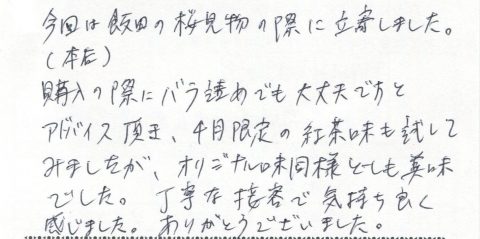 今回は飯田の桜見物の際に立寄しました。
(本店)
購入の際にバラ詰めでも大丈夫で方と
アドバイス頂き、4月限定の紅茶味も試して
みましたが、オリジナル味同様とても美味
でした。丁寧な接客で気持ち良く
感じました。ありがとうございました。